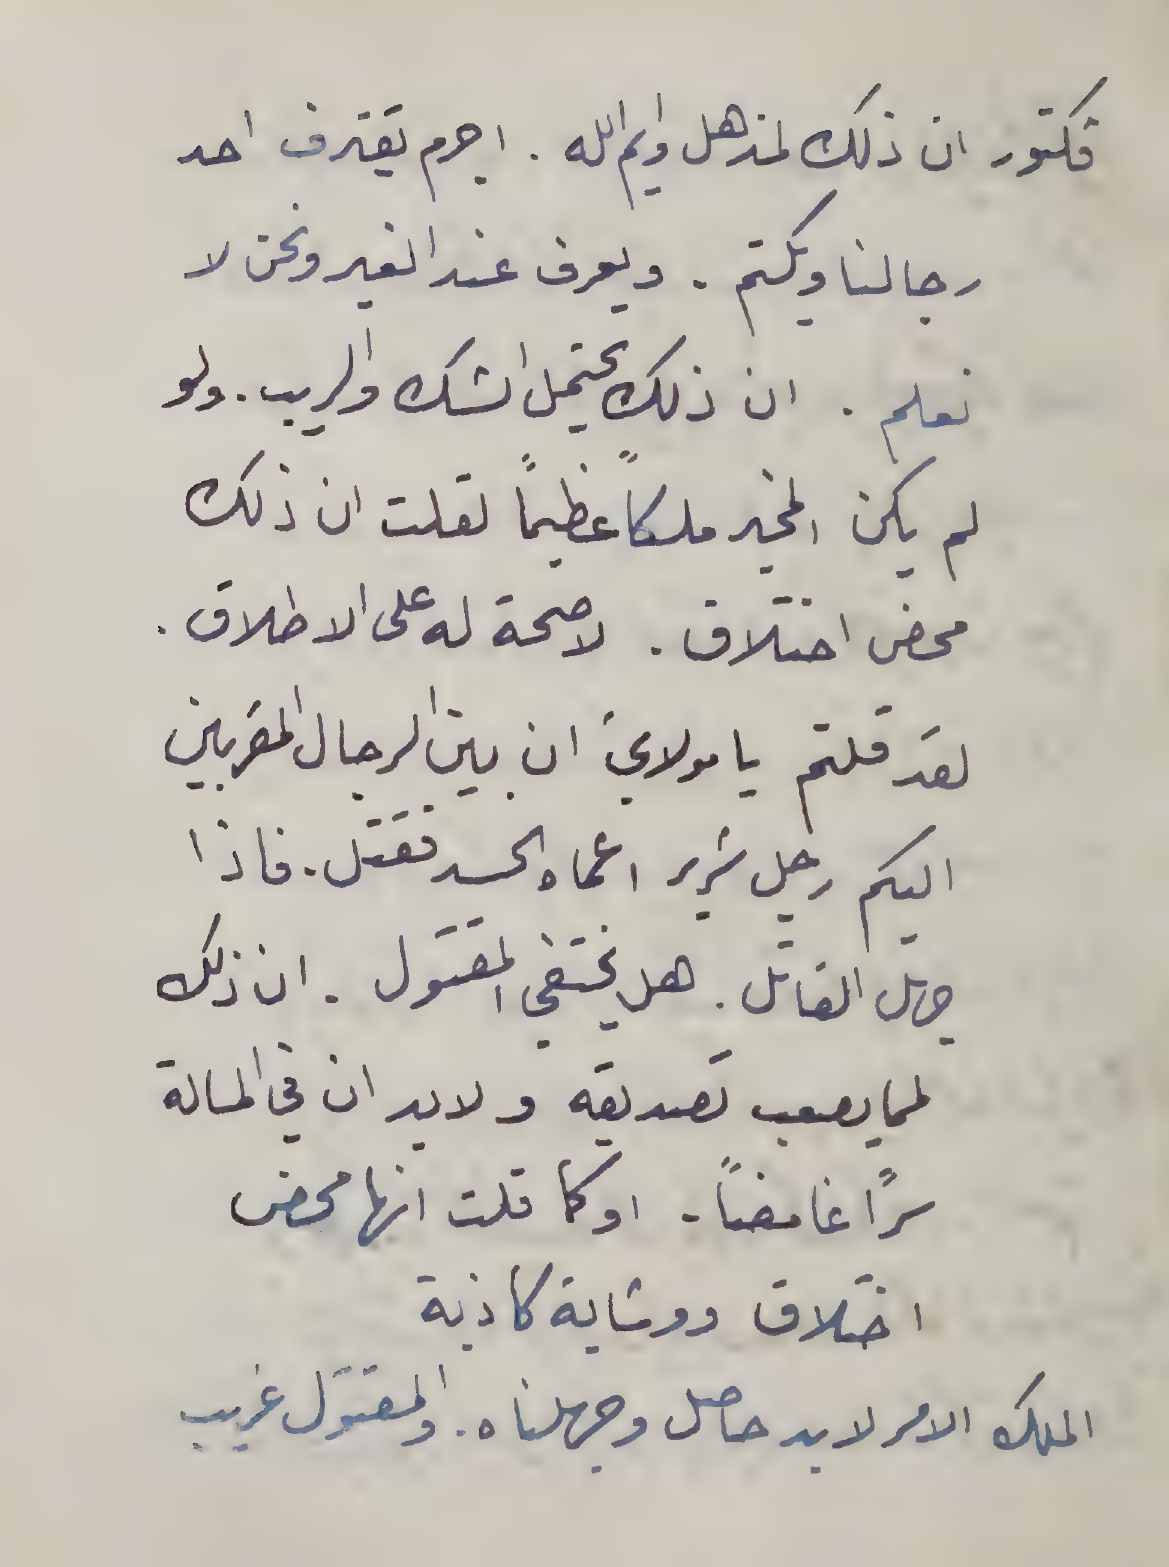 فكتور ان ذلك لمذهل وايم الله . اجرم يقترف احد
رجالنا ويكتم . ويعرف عند الغير ونحن لا
نعلم . ان ذلك يحتمل الشك والريب . ولو
لم يكن المخبر ملكاً عظيماً لقلت ان ذلك
محض اختلاق . لا صحة له على الاطلاق .
لقد قلتم يا مولاي ان بين الرجال المقربين
اليكم رجل شرير اعماه الحسد فقتل . فاذا
جهل القاتل . هل يختفي المقتول . ان ذلك
لمما يصعب تصديقه ولابد ان في المسالة
سرّاً غامضاً . او كما قلت انها محض
اختلاق ووشاية كاذبة
الملك الامر لابد حاصل وجهلناه . والمقتول غريب